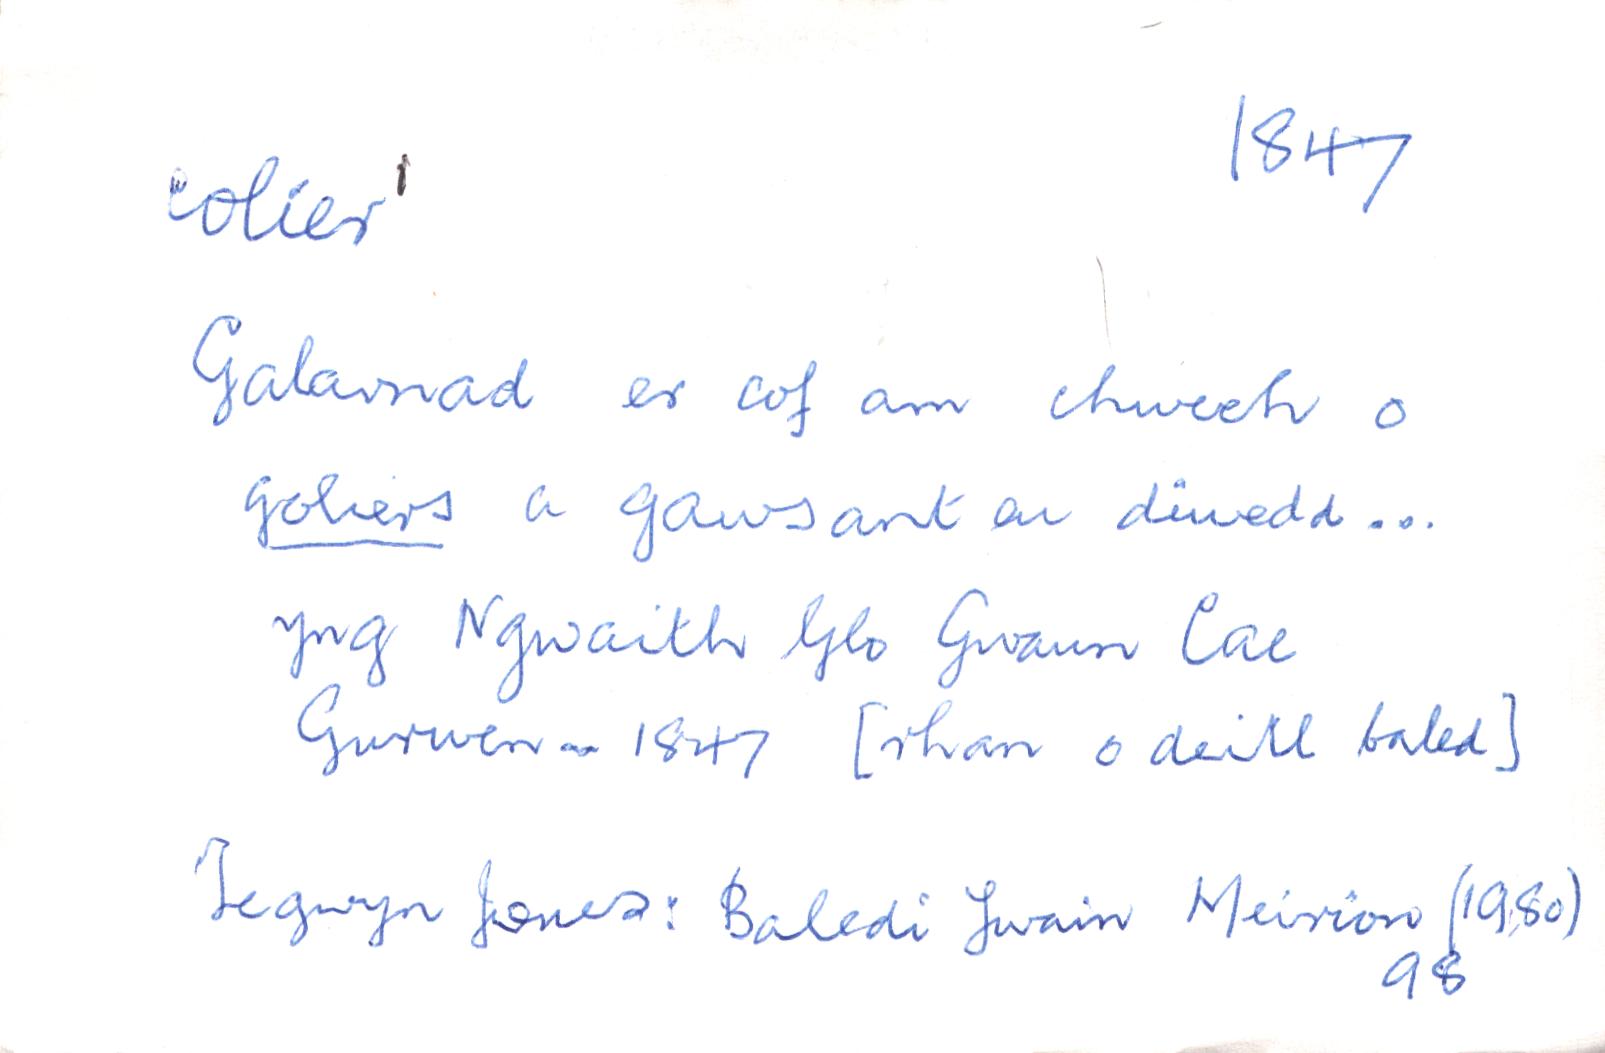 colier¹ 1847
Galarnad er cof am chwech o
goliers a gawsant eu diwedd...
yng Ngwaith Glo Gwaun Cae
Gurwen - 1847 [rhan o deitl baled]
Tegwyn Jones: Baledi Ywain Meirion (1980)
98